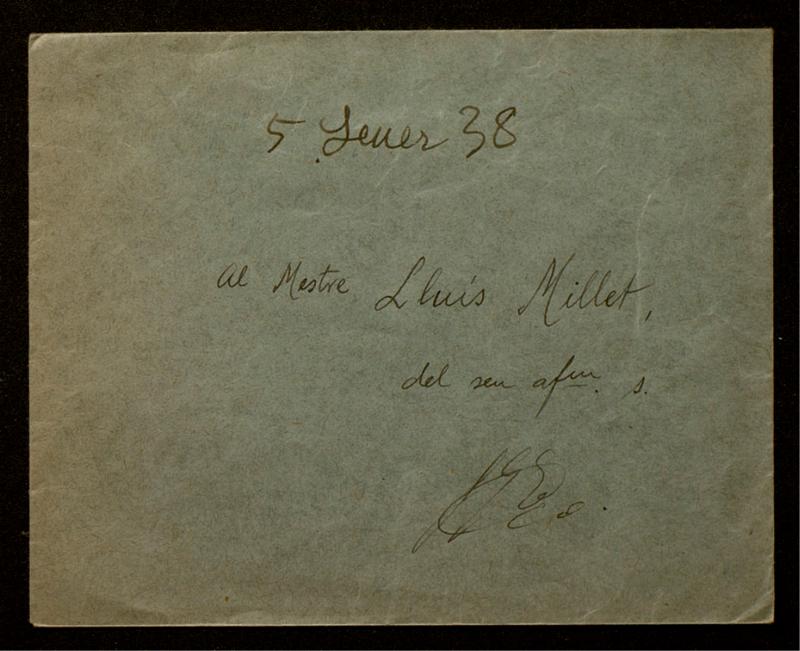 5 Gener 38
Al Mestre Lluís Millet,
del seu afm. s.